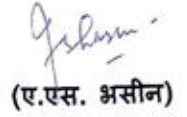 (ए.एस. भसीन)